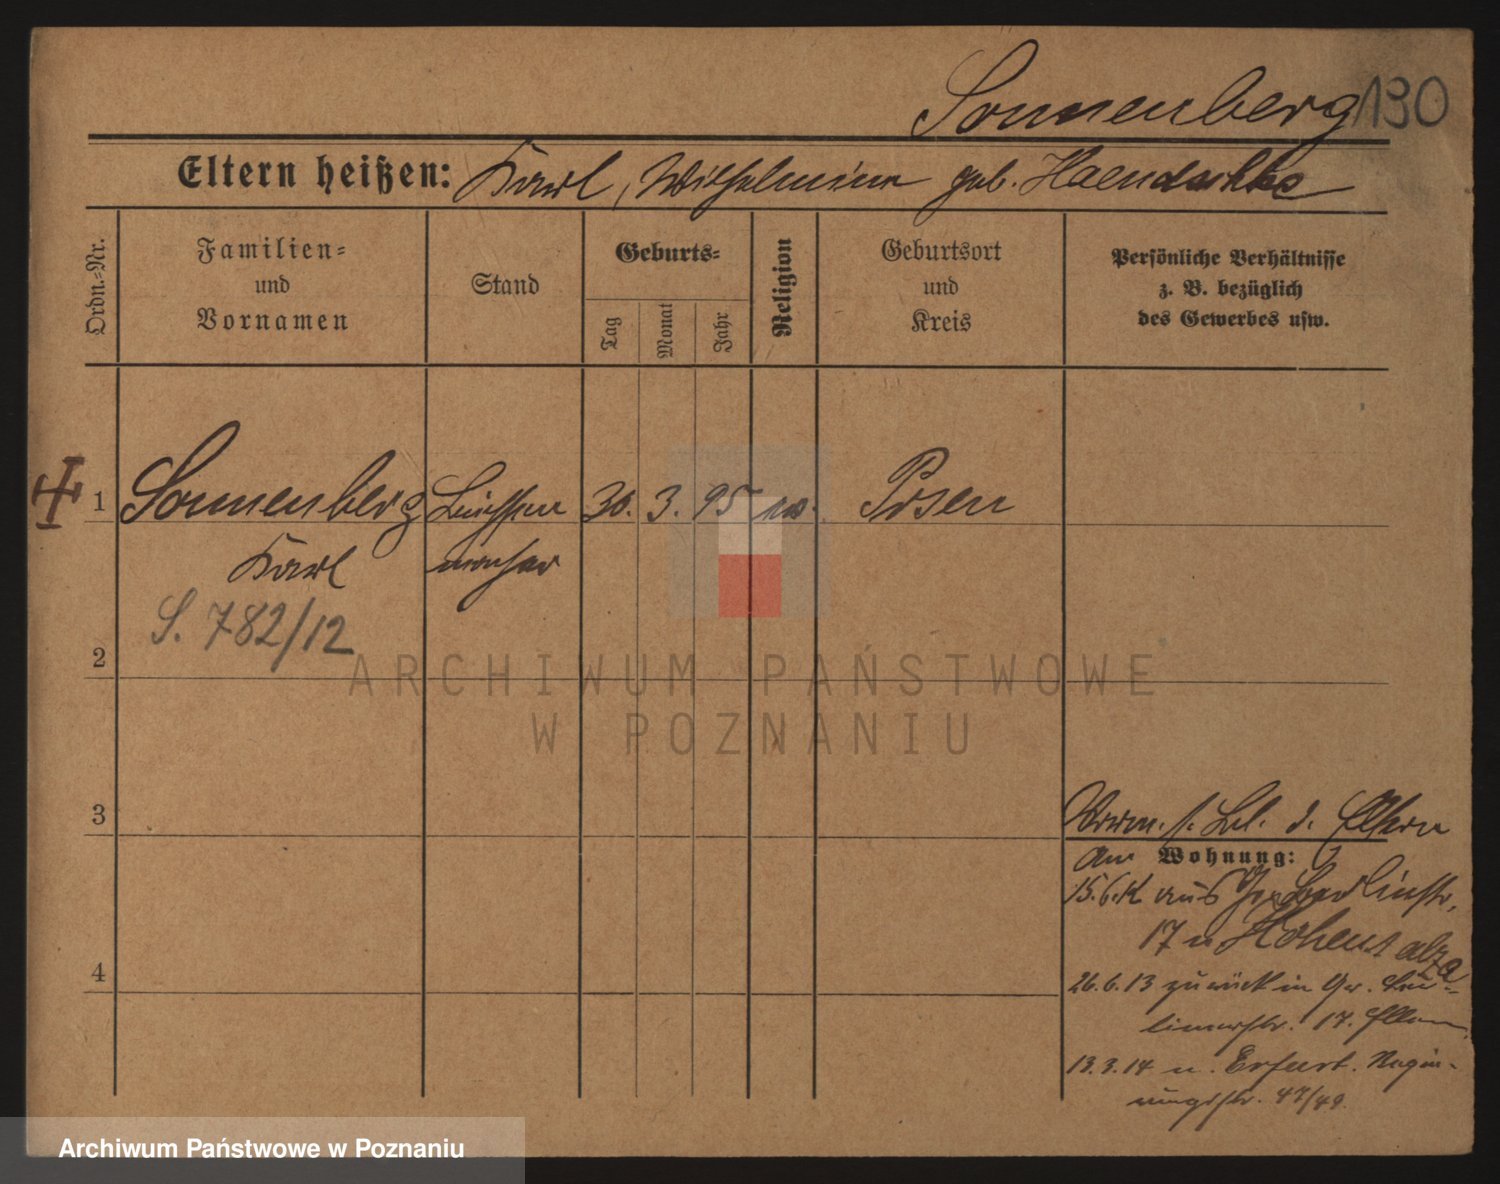 Sonnenberg 130
Eltern heißen: Karl, Wilhelmine geb. Haendschke
Ordn.-Nr.
Familien-
und
Vornamen
Stand
Geburts-
Tag
Monat
Jahr
Religion
Geburtsort
und
Kreis
Persönliche Verhältnisse
z. B. bezüglich
des Gewerbes usw.
1 Sonnenberg Büchsen 30. 3. 95 Posen
Karl macher
S. 782/12
2
3
4
Vorm. s. Bl. d. Eltern
Am Wohnung:
15.6.12 aus Gr. Berlinstr.
17 n Hohensalza
26.6.13 zurück in Gr. Ber-
linerstr. 17. Eltern
13.3.14 n. Erfurt.
47/49.
ARCHIWUM PAŃSTWOWE
W POZNANIU
Archiwum Państwowe w Poznaniu